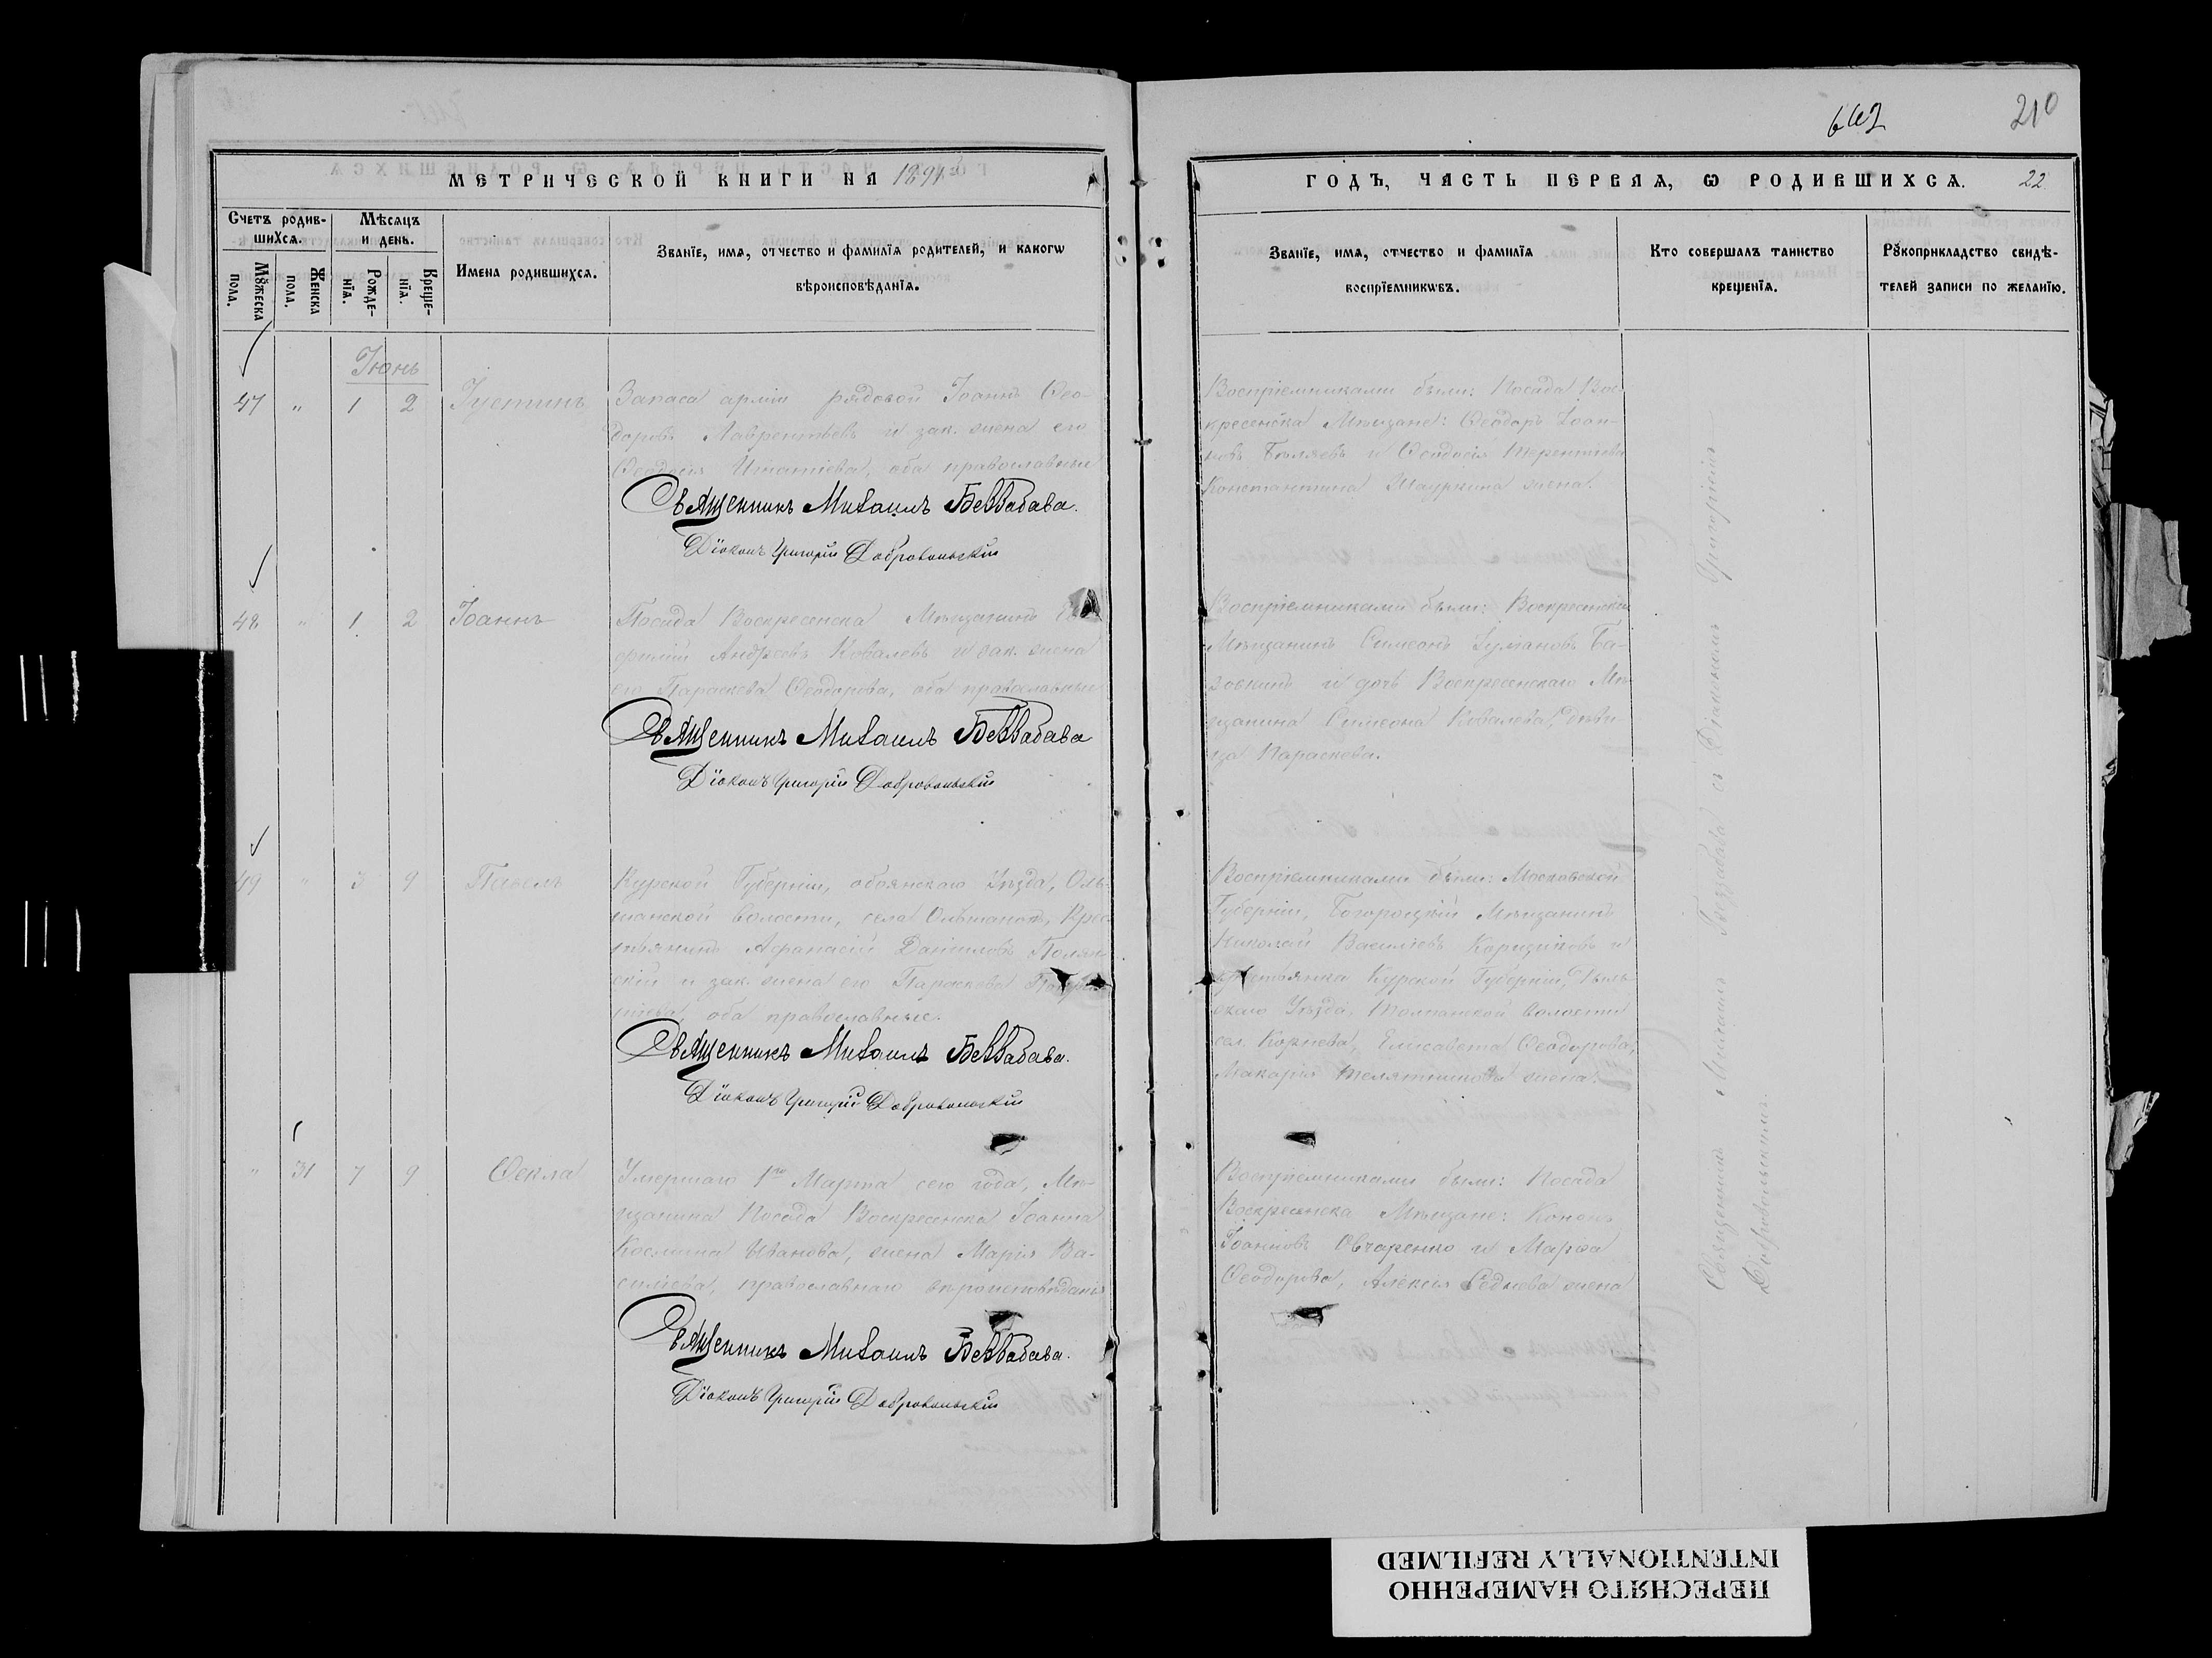 642
210
МЕТРИЧЕСКОЙ КНИГИ НА 1891й
ГОДЪ, ЧАСТЬ ПЕРВАѦ, Ѡ РОДИВШИХСѦ. 22
Счетъ родив-
шиХсѧ.
Мѣсѧцъ
и день.
Мꙋжеска
пола.
Женска
пола.
Рожде-
нїѧ.
Креще-
нїѧ.
Имена родившихсѧ.
Званїе, имѧ, отчество и фамилїѧ родителей, и какогѡ
вѣроисповѣданїѧ.
Званїе, имѧ, отчество и фамилїѧ
воспрїемникѡвъ.
Кто совершалъ таинство
крещенїѧ.
Рꙋкоприкладство свидѣ-
телей записи по желанїю.
Іюнь
47 " 1 2 Іустинъ
Запаса арміи рядовой Іоаннъ Ѳео-
доровъ Лаврентьевъ и зак. жена его
Ѳеодосія Игнатіева, оба православные
Священникъ Михаилъ Беззабава.
Діаконъ Григорій Добровольскій
Воспріемниками были: Посада Вос-
кресенска Мѣщане: Ѳеодоръ Іоан-
новъ Бѣляевъ и Ѳеодосія Терентіева
Константина жена.
48 " 1 2 Іоаннъ
Посада Воскресенска Мѣщанинъ
Андреевъ Ковалевъ и зак. жена
его Параскева Ѳеодорова, оба православные
Священникъ Михаилъ Беззабава
Діаконъ Григорій Добровольскій
Воспріемниками были: Воскресенскій
Мѣщанинъ Симеонъ Ба-
зовкинъ и дочь Воскресенскаго Мѣ-
щанина Симеона Ковалева, дѣви-
ца Параскева.
49 " 3 9 Павелъ
Курской Губерніи, обоянскаго Уѣзда, Оль-
шанской волости, села Ольшанокъ, Крес-
тьянинъ Аѳанасій Даніиловъ Полян-
скій и зак. жена его Параскева
оба православные.
Священникъ Михаилъ Беззабава.
Діаконъ Григорій Добровольскій
Воспріемниками были: Московской
Губерніи, Богородскій Мѣщанинъ
Николай Василіевъ и
крестьянка Курской Губерніи,
скаго Уѣзда, Толпинской волости
сел. Корнева, Елисавета Ѳеодорова,
Макарія Телятникова жена.
" 31 7 9 Ѳекла
Умершаго 1го Марта сего года, Мѣ-
щанина Посада Воскресенска Іоанна
Косьмина Иванова, жена Марія Ва-
силіева, православнаго вѣроисповѣданія
Священникъ Михаилъ Беззабава.
Діаконъ Григорій Добровольскій
Воспріемниками были: Посада
Воскресенска Мѣщане: Кононъ
Іоанновъ Овчаренко и Марѳа
Ѳеодорова, Алексія Седнева жена
Священникъ Михаилъ Беззабава съ Діакономъ Григоріемъ
Добровольскимъ.
ПЕРЕСНЯТО НАМЕРЕННО
INTENTIONALLY REFILMED